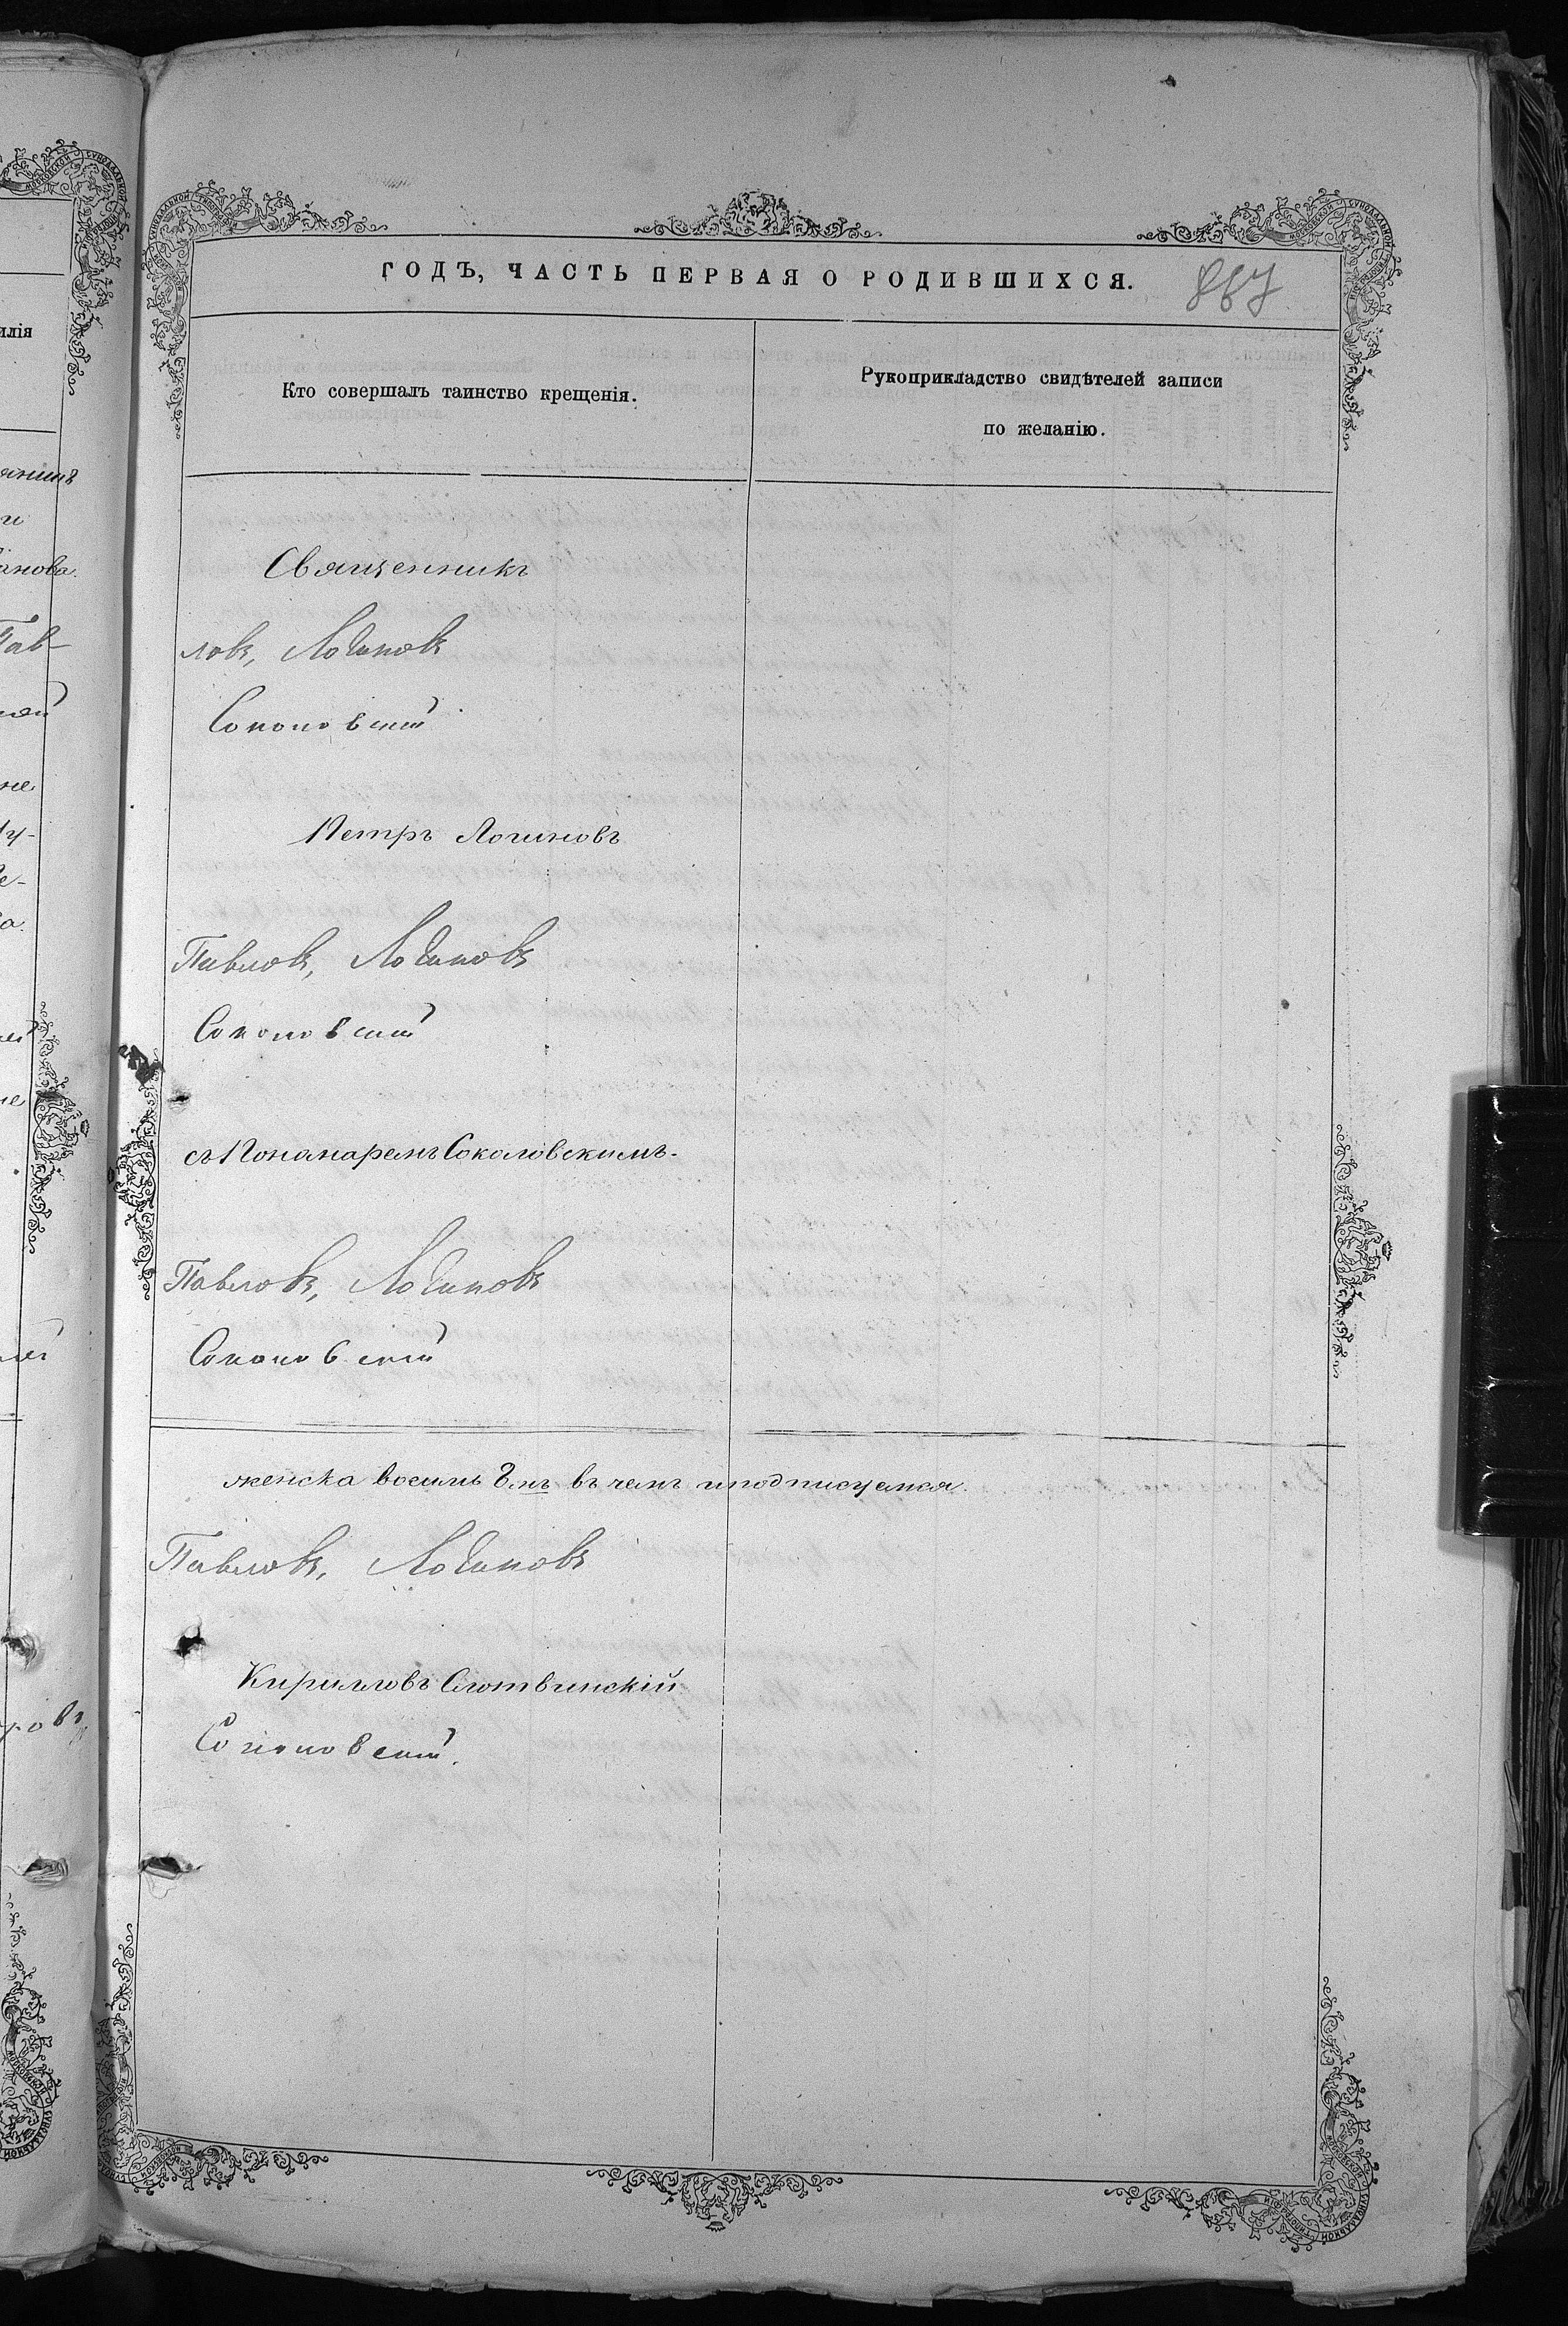 ГОДЪ, ЧАСТЬ ПЕРВАЯ О РОДИВШИХСЯ.
867
Кто совершалъ таинство крещенія.
Рукоприкладство свидѣтелей записи
по желанію.
илія
Священникъ
ловъ, Логиновъ
Соколовскій
Петръ Логиновъ
Павловъ, Логиновъ
Соколовскій
съ Понамаремъ Соколовскимъ.
Павловъ, Логиновъ
Соколовскій
женска восимь 8мь въ чемъ иподписуемся.
Павловъ, Логиновъ
Кирилловъ Слотвинскій
Соколовскій.